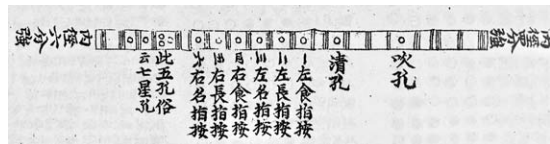 吹孔
清孔
一左食指按
二左長指按
三左名指按
四右食指按
五右長指按
六右名指按
此五孔俗
云七星孔
內徑六分